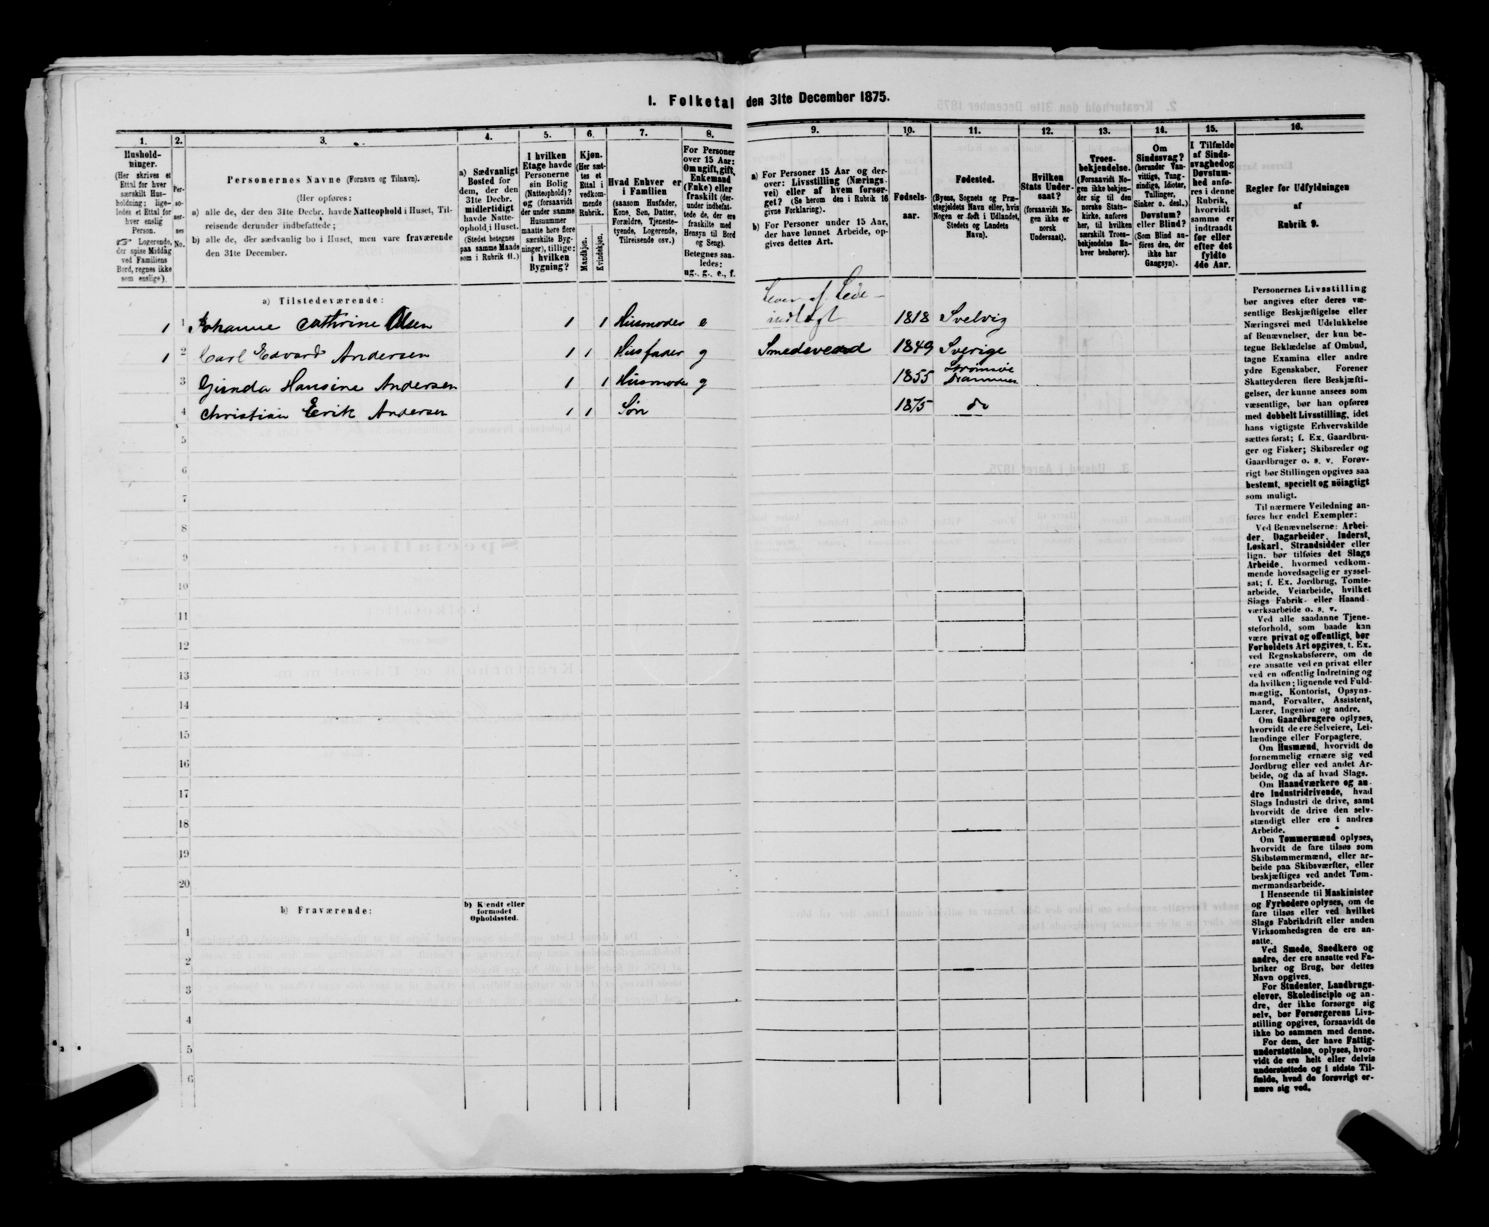 I. Folketal den 31te December 1875.
1.
2.
3.
4.
5.
6.
7.
8.
9.
10.
11.
12.
13.
14.
15.
16.
Hushold-
ninger.
(Her skrives et
Ettal for hver
særskilt Hus-
holdning; lige-
ledes et Ettal for
hver enslig
Person.
☞ Logerende,
der spise Middag
ved Familiens
Bord, regnes ikke
som enslige).
Per-
so-
ner-
nes
No.
Personernes Navne (Fornavn og Tilnavn).
(Her opføres:
a) alle de, der den 31te Decbr. havde Natteophold i Huset, Til-
reisende derunder indbefattede;
b) alle de, der sædvanlig bo i Huset, men vare fraværende
den 31te December.
a) Sædvanligt
Bosted for
dem, der den
31te Decbr.
midlertidigt
havde Natte-
ophold i Huset.
(Stedet betegnes
paa samme Maade
som i Rubrik 11.)
I hvilken
Etage havde
Personerne
sin Bolig
(Natteophold)?
og (forsaavidt
der under samme
Husnummer
maatte høre flere
særskilte Byg-
ninger), tillige:
i hvilken
Bygning?
Kjøn.
(Her sæt-
tes et
Ettal i
vedkom-
mende
Rubrik.
Mandkjøn.
Kvindekjøn.
Hvad Enhver er
i Familien
(saasom Husfader,
Kone, Søn, Datter,
Forældre, Tjeneste-
tyende, Logerende,
Tilreisende osv.)
For Personer
over 15 Aar:
Om ugift, gift,
Enkemand
(Enke) eller
fraskilt (der-
under indbefat-
tede de, der ere
fraskilte med
Hensyn til Bord
og Seng).
Betegnes saa-
ledes:
ug., g., e., f.
a) For Personer 15 Aar og der-
over: Livsstilling (Nærings-
vei) eller af hvem forsør-
get? (Se herom den i Rubrik 16
givne Forklaring).
b) For Personer under 15 Aar,
der have lønnet Arbeide, op-
gives dettes Art.
Fødsels-
aar.
Fødested.
(Byens, Sognets og Præ-
stegjeldets Navn eller, hvis
Nogen er født i Udlandet,
Stedets og Landets
Navn).
Hvilken
Stats Under-
saat?
(forsaavidt No-
gen ikke er
norsk
Undersaat).
Troes-
bekjendelse.
(Forsaavidt No-
gen ikke bekjen-
der sig til den
norske Stats-
kirke, anføres
her, til hvilken
særskilt Troes-
bekjendelse En-
hver henhører).
Om
Sindssvag?
(herunder Van-
vittige, Tung-
sindige, Idioter,
Tullinger,
Sinker o. desl.)
Døvstum?
eller Blind?
(Som Blind an-
føres den, der
ikke har
Gangsyn).
I Tilfælde
af Sinds-
svaghed og
Døvstum-
hed anfø-
res i denne
Rubrik,
hvorvidt
samme er
indtraadt
før eller
efter det
fyldte
4de Aar.
Regler for Udfyldningen
af
Rubrik 9.
a) Tilstedeværende:
1 1 Johanne Cathrine Olsen 1 1 Husmoder e Lever af Løde-indlagt 1818 Svelvig
1 2 Carl Edvard Andersen 1 1 Husfader g Smedsvend 1849 Sverige
3 Gunda Hansine Andersen 1 1 Husmoder g 1855 Strømsøe Drammen
4 Christian Erik Andersen 1 1 Søn 1875 do
5
6
7
8
9
10
11
12
13
14
15
16
17
18
19
20
b) Fraværende:
b) Kjendt eller
formodet
Opholdssted.
1
2
3
4
5
6
Personernes Livsstilling
bør angives efter deres væ-
sentlige Beskjæftigelse eller
Næringsvei med Udelukkelse
af Benævnelser, der kun be-
tegne Beklædelse af Ombud,
tagne Examina eller andre
ydre Egenskaber. Forener
Skatteyderen flere Beskjæfti-
gelser, der kunne ansees som
væsentlige, bør han opføres
med dobbelt Livsstilling, idet
hans vigtigste Erhvervskilde
sættes først; f. Ex. Gaardbru-
ger og Fisker; Skibsreder og
Gaardbruger o. s. v. Forøv-
rigt bør Stillingen opgives saa
bestemt, specielt og nøiagtigt
som muligt.
Til nærmere Veiledning an-
føres her endel Exempler:
Ved Benævnelserne: Arbei-
der, Dagarbeider, Inderst,
Løskarl, Strandsidder eller
lign. bør tilføies det Slags
Arbeide, hvormed vedkom-
mende hovedsagelig er syssel-
sat; f. Ex. Jordbrug, Tomte-
arbeide, Veiarbeide, hvilket
Slags Fabrik- eller Haand-
værksarbeide o. s. v.
Ved alle saadanne Tjene-
steforhold, som baade kan
være privat og offentligt, bør
Forholdets Art opgives, t. Ex.
ved Regnskabsførere, om de
ere ansatte ved en privat eller
ved en offentlig Indretning og
da hvilken; lignende ved Fuld-
mægtig, Kontorist, Opsyns-
mand, Forvalter, Assistent,
Lærer, Ingeniør og andre.
Om Gaardbrugere oplyses,
hvorvidt de ere Selveiere, Lei-
lændinge eller Forpagtere.
Om Husmænd, hvorvidt de
fornemmelig ernære sig ved
Jordbrug eller ved andet Ar-
beide, og da af hvad Slags.
Om Haandværkere og an-
dre Industridrivende, hvad
Slags Industri de drive, samt
hvorvidt de drive den selv-
stændigt eller ere i andres
Arbeide.
Om Tømmermænd oplyses,
hvorvidt de fare tilsøs som
Skibstømmermænd, eller ar-
beide paa Skibsværfter, eller
beskjæftiges ved andet Tøm-
mermandsarbeide.
I Henseende til Maskinister
og Fyrbødere oplyses, om de
fare tilsøs eller ved hvilket
Slags Fabrikdrift eller anden
Virksomhedsgren de ere an-
satte.
Ved Smede, Snedkere og
andre, der ere ansatte ved Fa-
briker og Brug, bør dettes
Navn opgives.
For Studenter, Landbrugs-
elever, Skoledisciple og an-
dre, der ikke forsørge sig
selv, bør Forsørgerens Livs-
stilling opgives, forsaavidt de
ikke bo sammen med denne.
For dem, der have Fattig-
understøttelse, oplyses, hvor-
vidt de ere helt eller delvis
understøttede og i sidste Til-
fælde, hvad de forøvrigt er-
nære sig ved.